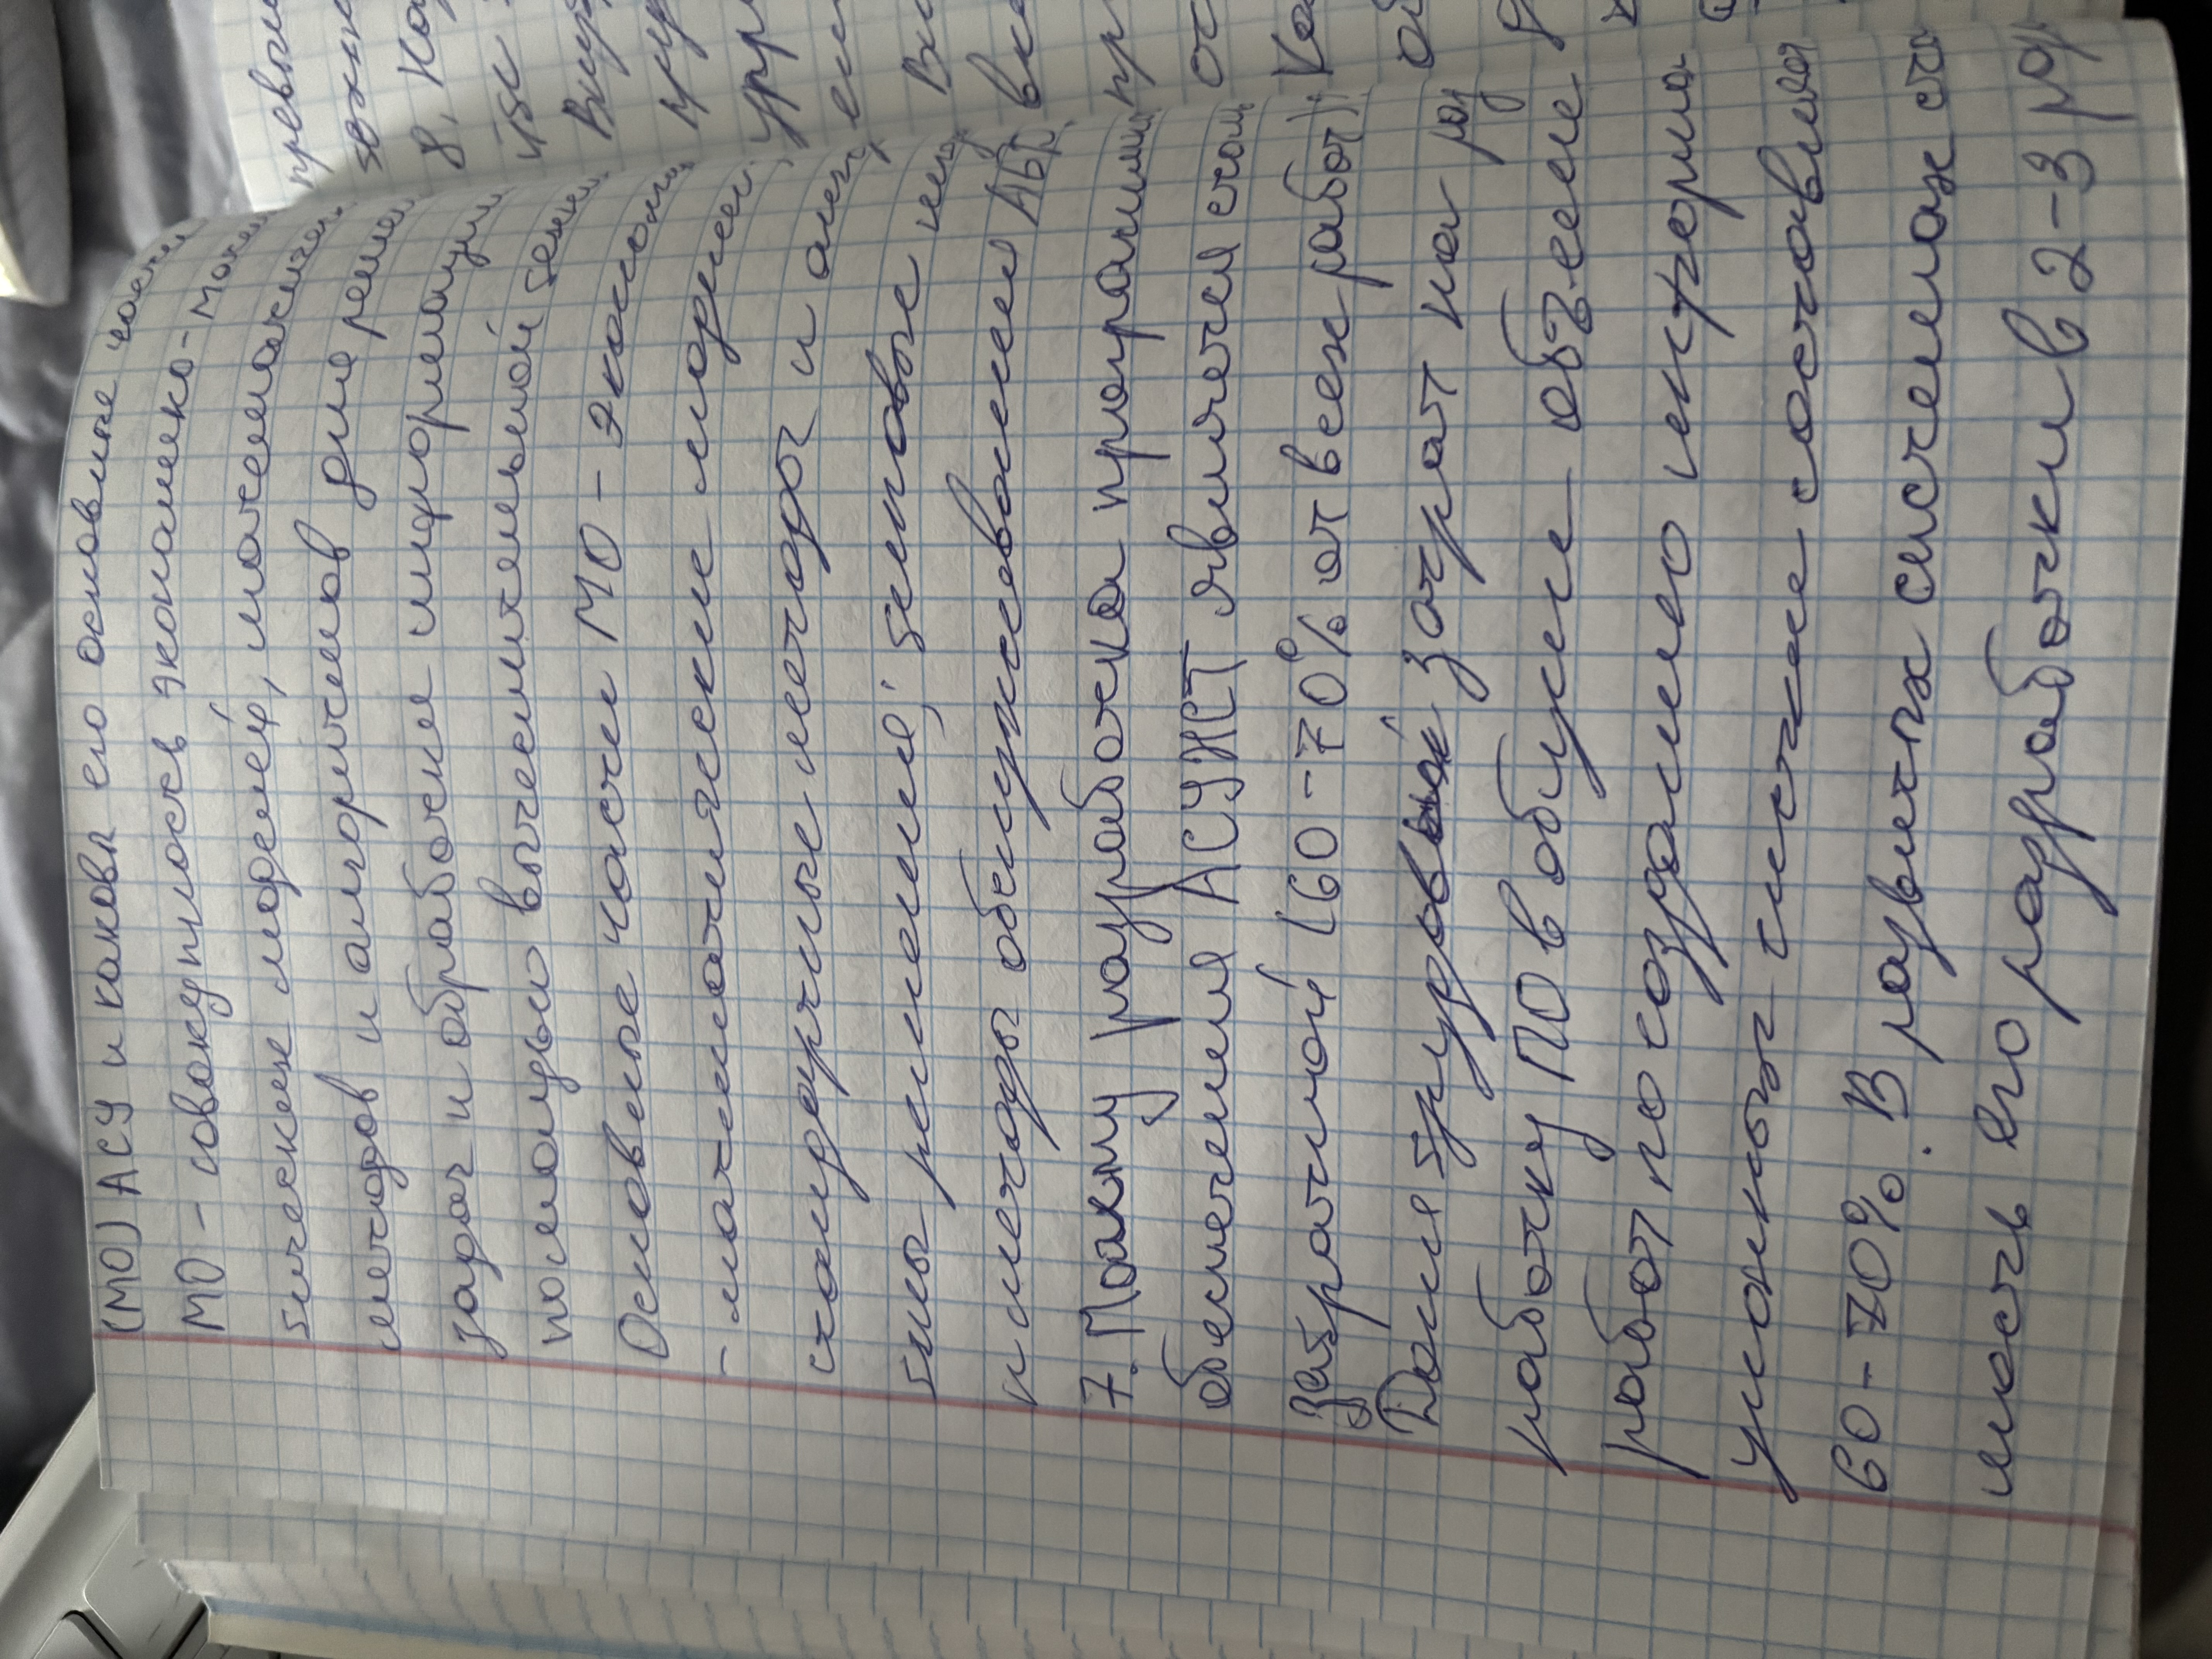 (МО) АСУ и каковы его основные части
МО - совокупность экономико-мате
тических моделей, математичес
методов и алгоритмов для решен
задач и обработки информации
помощью вычислительной техни
Основные части МО - экономи
- математические модели
стандартные методы и алг
мы решения; типовые
и методы обслуживания
7. Почему разработка программ
обеспечения АСУЖТ является
затратной (60-70% от всех работ)
Доля трудовых затрат на раз
работку ПО в общем объеме
работ по созданию информа
ционных систем составля
60-70%. В развитых системах
мость его разработки в 2-3
превы
8. Ка